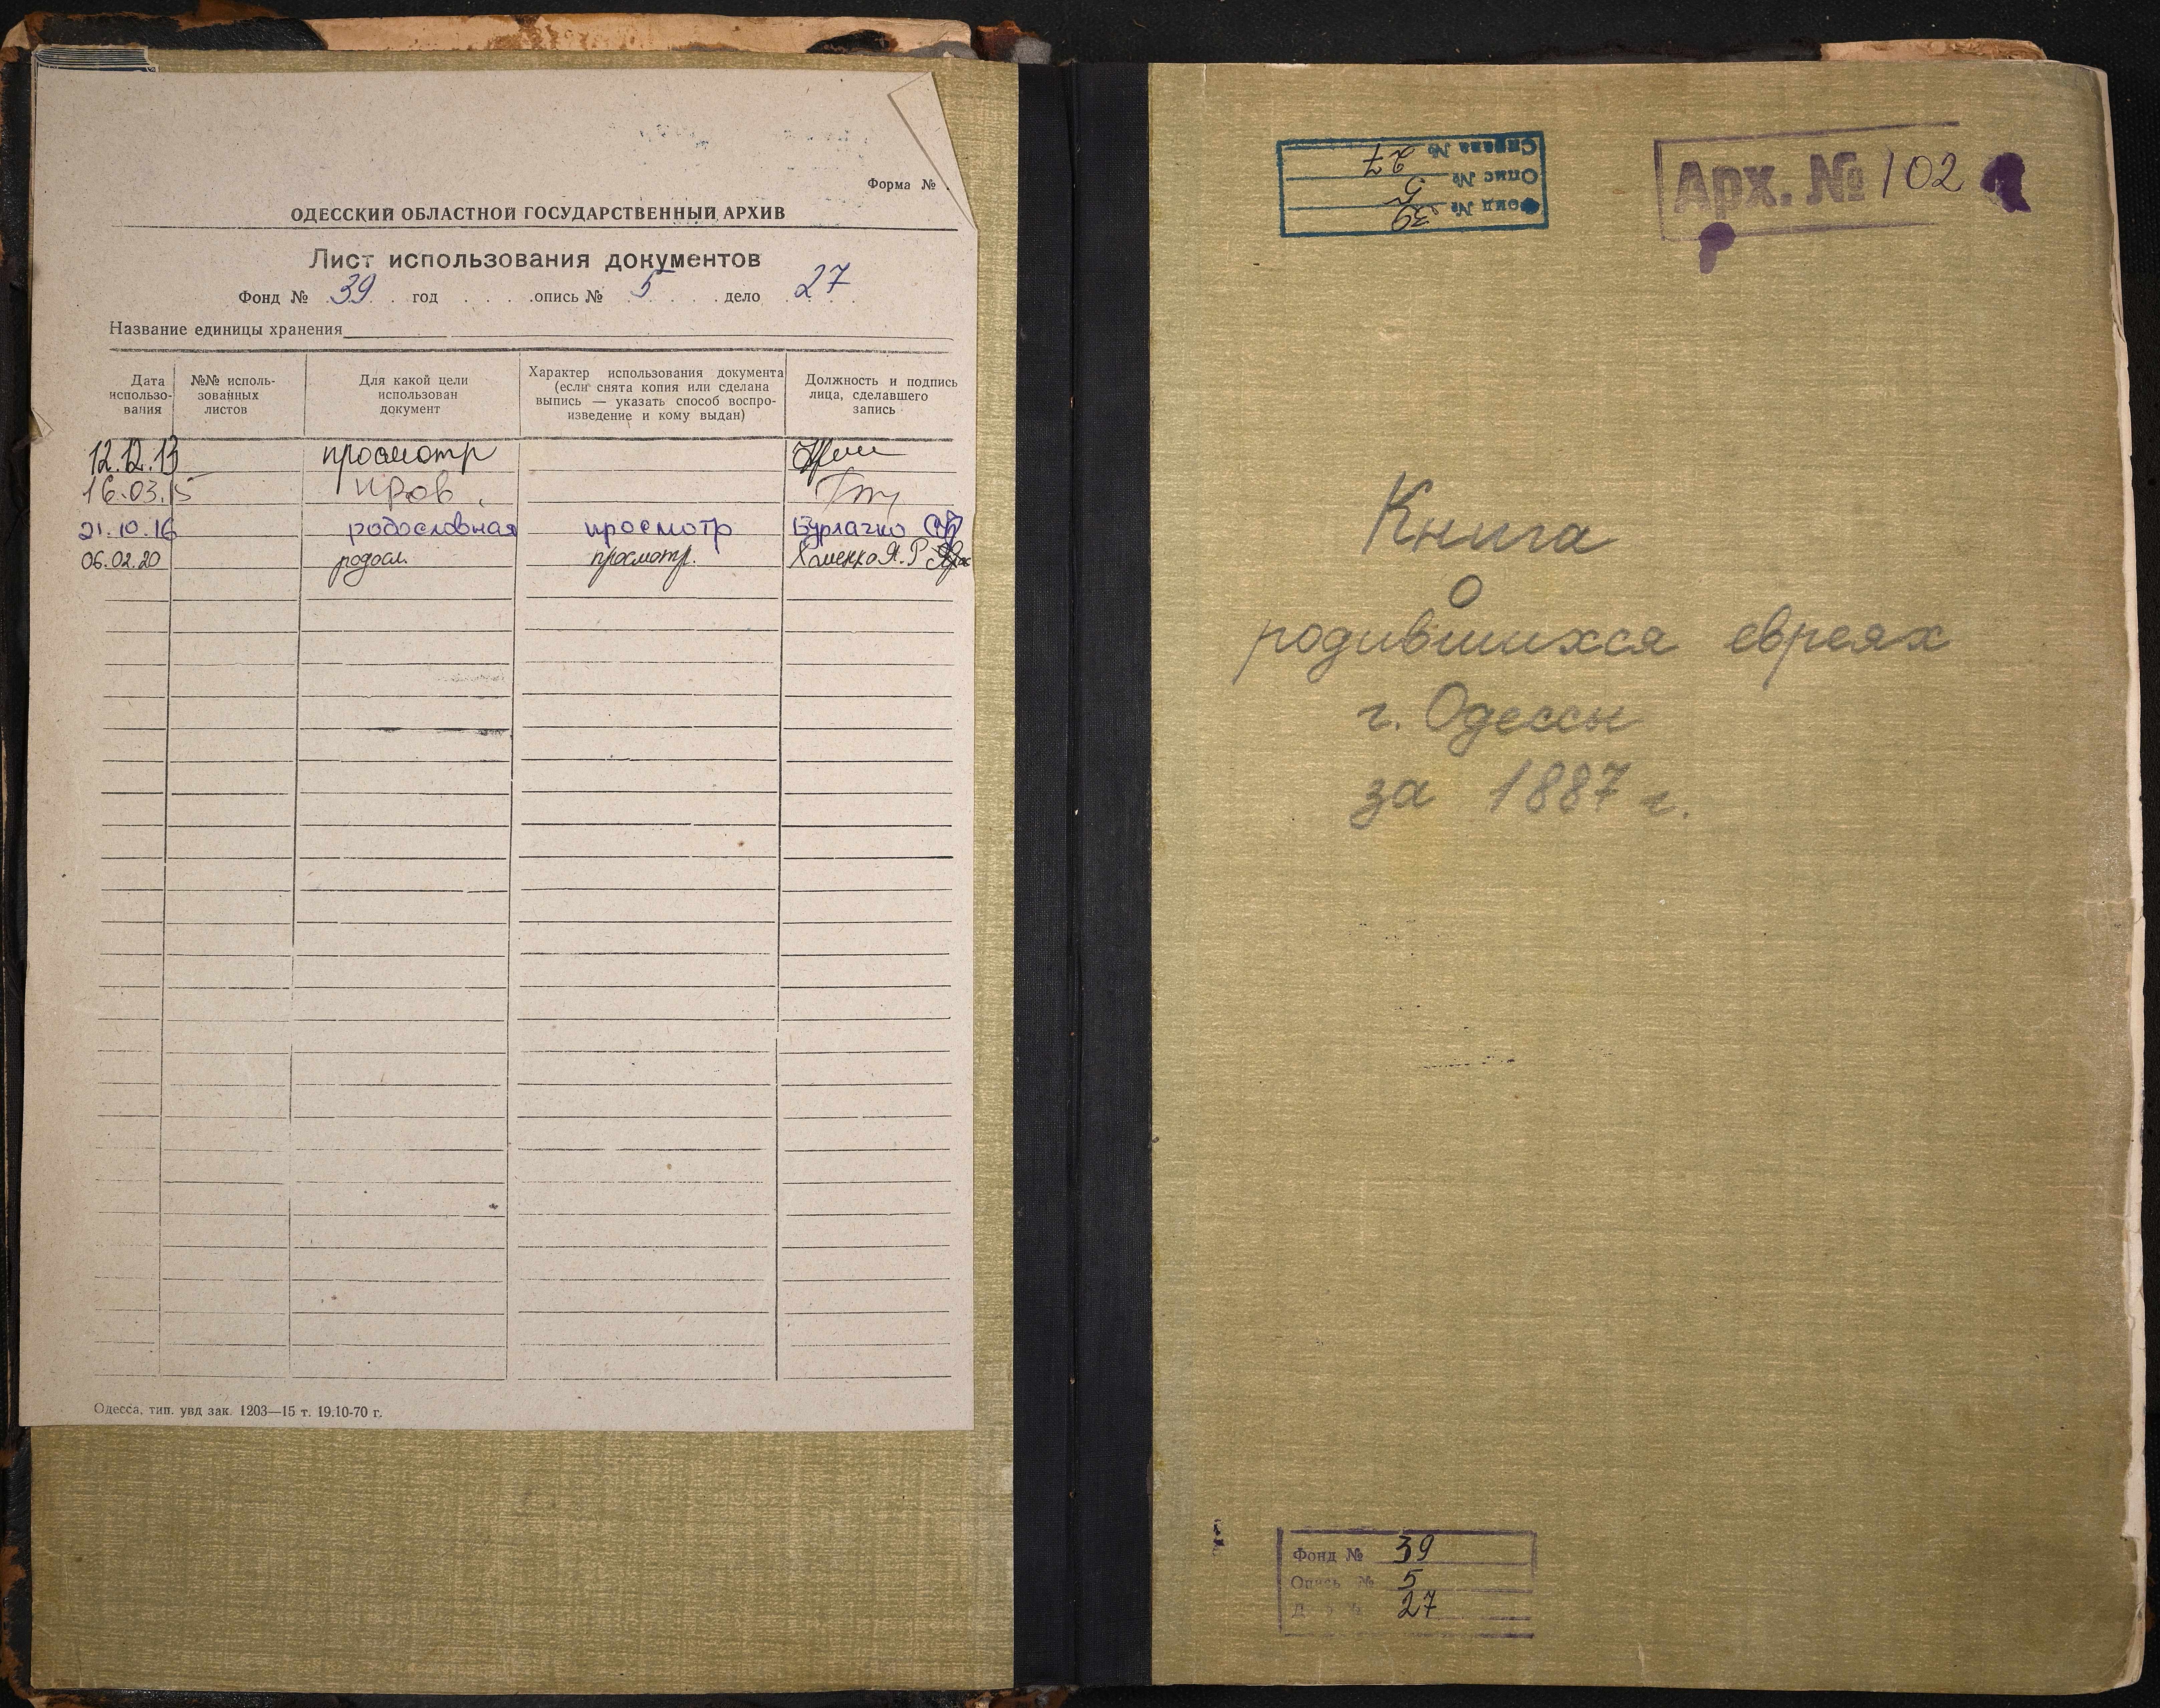 Форма №
ОДЕССКИЙ ОБЛАСТНОЙ ГОСУДАРСТВЕННЫЙ АРХИВ
Лист использования документов
Фонд № 39 год опись № 5 дело 27
Название единицы хранения
Дата использо-вания
№№ исполь-зованных листов
Для какой цели использован документ
Характер использования документа (если снята копия или сделана выпись — указать способ воспро-изведение и кому выдан)
Должность и подпись лица, сделавшего запись
12.12.13 просмотр
16.03.15 пров.
21.10.16 родословная просмотр Бурлачко
06.02.20 родосл. просмотр. Хоменко Я.Р
Одесса, тип. увд зак. 1203—15 т. 19.10-70 г.
Фонд № 39
Опис № 5
Справа № 27
Арх. № 102
Книга
о
родившихся евреях
г. Одессы
за 1887 г.
Фонд № 39
Опись № 5
27